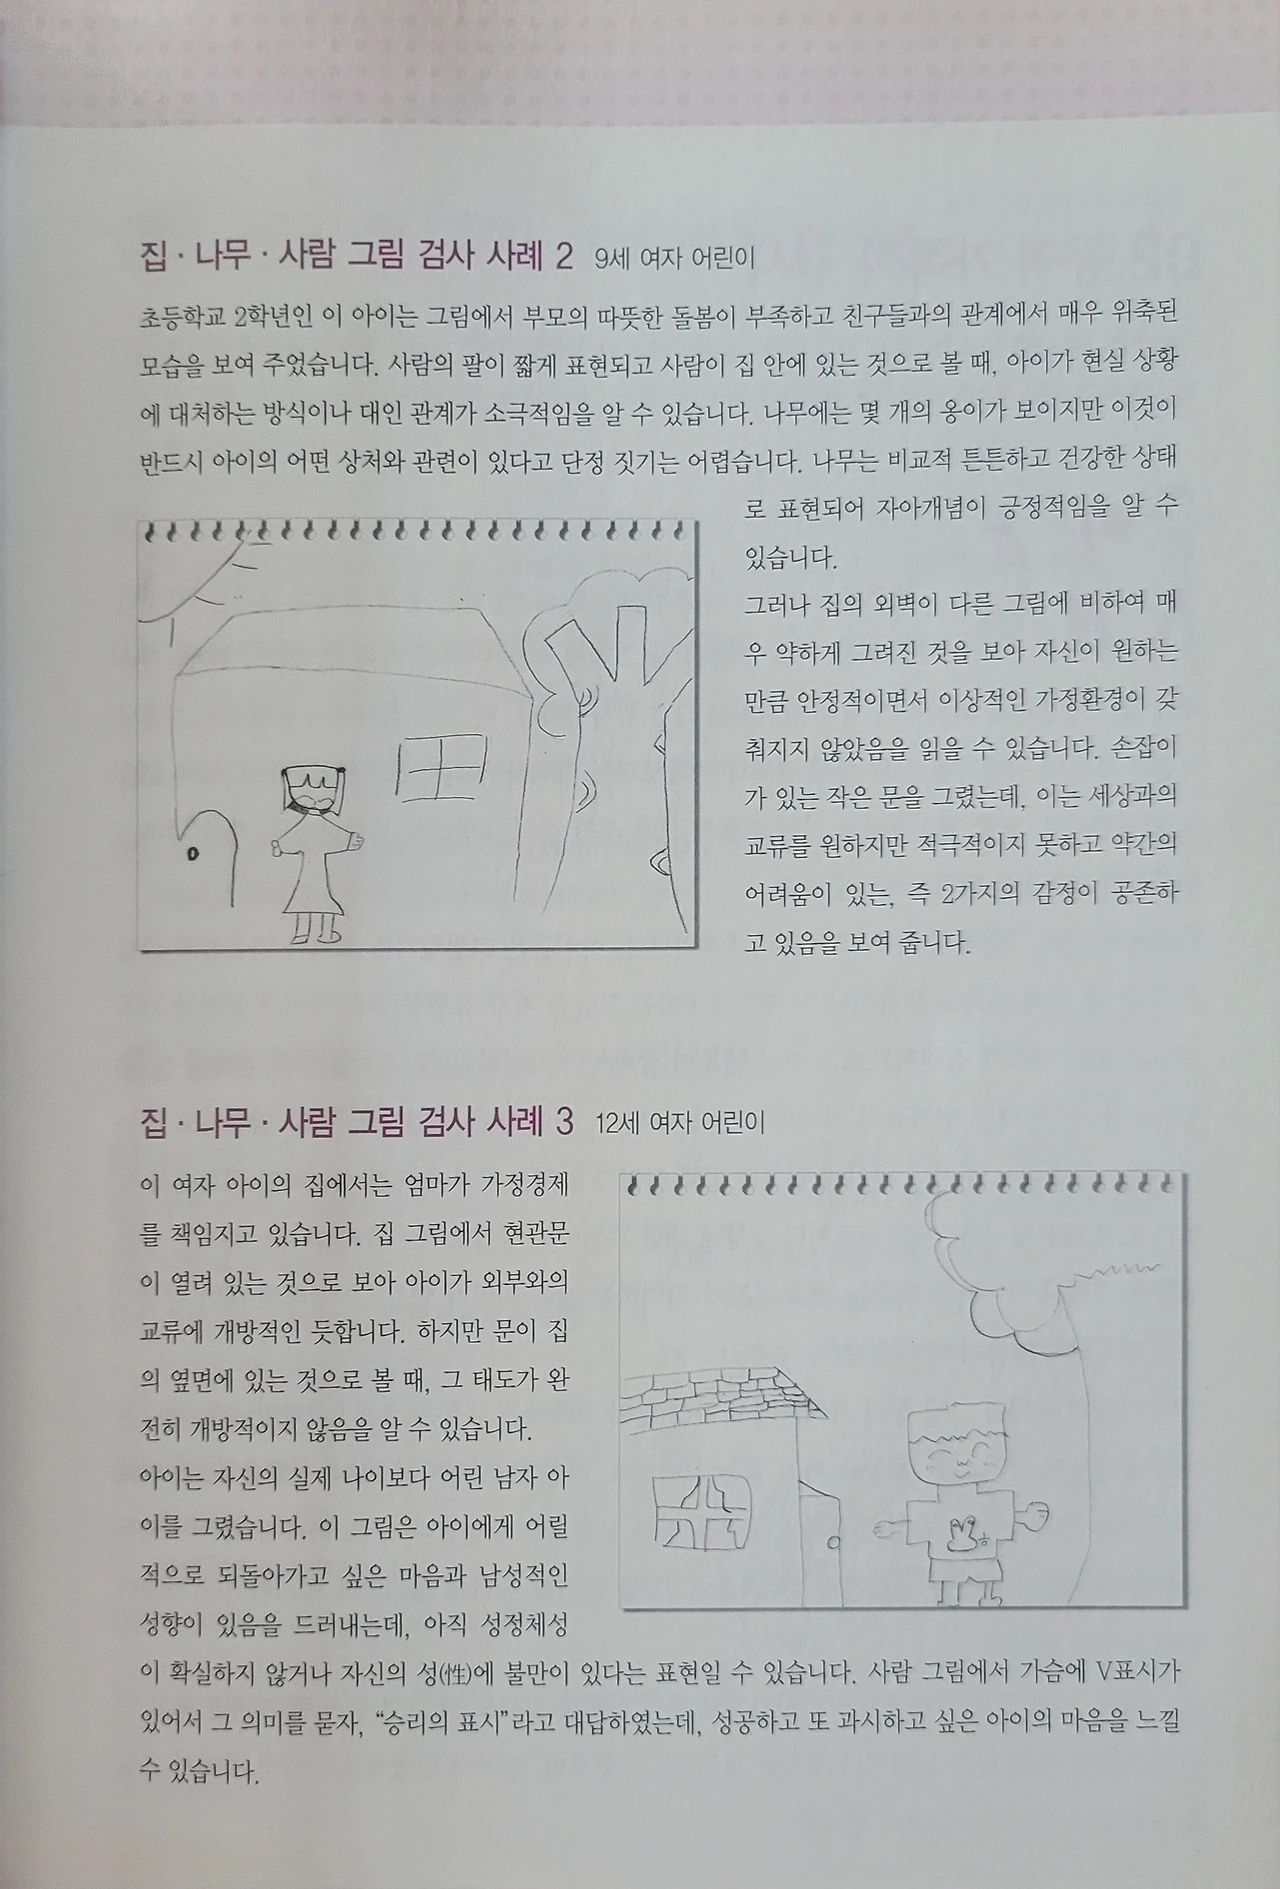 집·나무·사람 그림 검사 사례 2 9세 여자 어린이
초등학교 2학년인 이 아이는 그림에서 부모의 따뜻한 돌봄이 부족하고 친구들과의 관계에서 매우 위축된
모습을 보여 주었습니다. 사람의 팔이 짧게 표현되고 사람이 집 안에 있는 것으로 볼 때, 아이가 현실 상황
에 대처하는 방식이나 대인 관계가 소극적임을 알 수 있습니다. 나무에는 몇 개의 옹이가 보이지만 이것이
반드시 아이의 어떤 상처와 관련이 있다고 단정 짓기는 어렵습니다. 나무는 비교적 튼튼하고 건강한 상태
로 표현되어 자아개념이 긍정적임을 알 수
있습니다.
그러나 집의 외벽이 다른 그림에 비하여 매
우 약하게 그려진 것을 보아 자신이 원하는
만큼 안정적이면서 이상적인 가정환경이 갖
춰지지 않았음을 읽을 수 있습니다. 손잡이
가 있는 작은 문을 그렸는데, 이는 세상과의
교류를 원하지만 적극적이지 못하고 약간의
어려움이 있는, 즉 2가지의 감정이 공존하
고 있음을 보여 줍니다.
집·나무·사람 그림 검사 사례 3 12세 여자 어린이
이 여자 아이의 집에서는 엄마가 가정경제
를 책임지고 있습니다. 집 그림에서 현관문
이 열려 있는 것으로 보아 아이가 외부와의
교류에 개방적인 듯합니다. 하지만 문이 집
의 옆면에 있는 것으로 볼 때, 그 태도가 완
전히 개방적이지 않음을 알 수 있습니다.
아이는 자신의 실제 나이보다 어린 남자 아
이를 그렸습니다. 이 그림은 아이에게 어릴
적으로 되돌아가고 싶은 마음과 남성적인
성향이 있음을 드러내는데, 아직 성정체성
이 확실하지 않거나 자신의 성(性)에 불만이 있다는 표현일 수 있습니다. 사람 그림에서 가슴에 V표시가
있어서 그 의미를 묻자, “승리의 표시”라고 대답하였는데, 성공하고 또 과시하고 싶은 아이의 마음을 느낄
수 있습니다.